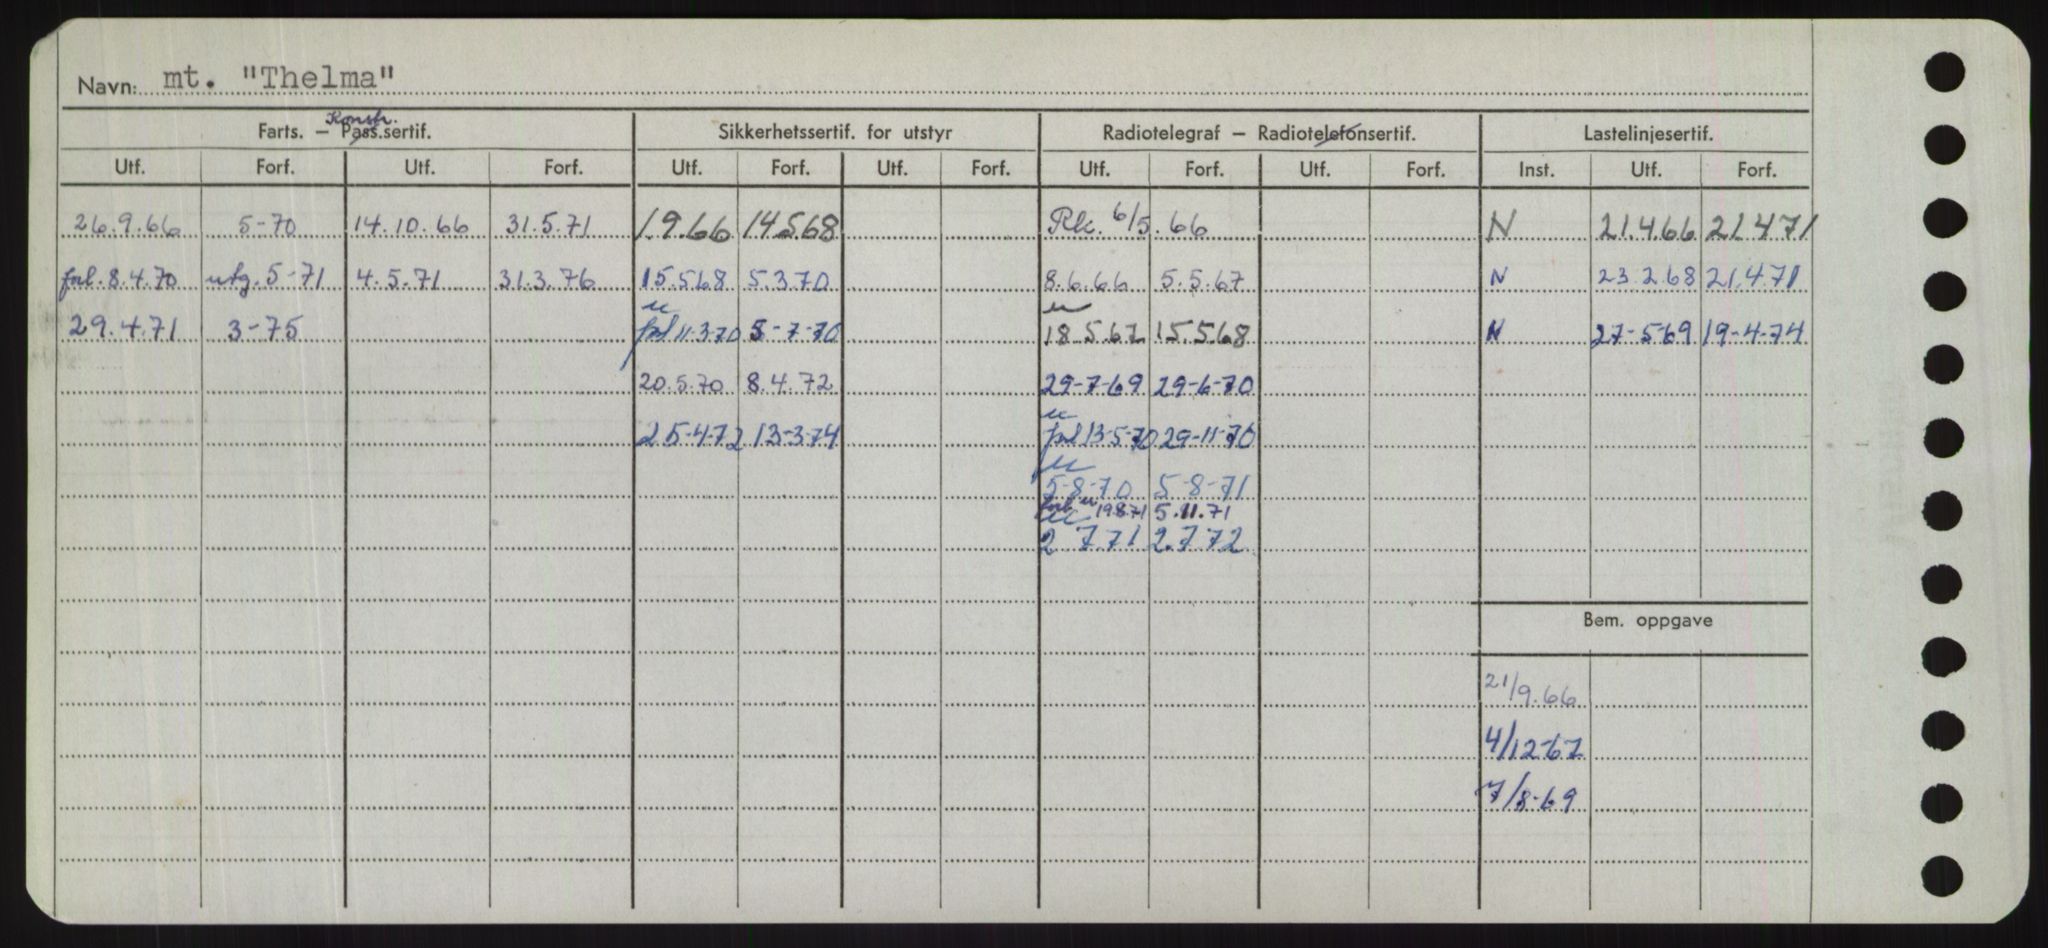 Navn: mt. "Thelma"
Konstr.
Farts. – Pass.sertif. Sikkerhetssertif. for utstyr Radiotelegraf – Radiotelefonsertif. Lastelinjesertif.
Utf. Forf. Utf. Forf. Utf. Forf. Utf. Forf. Utf. Forf. Utf. Forf. Inst. Utf. Forf.
26.9.66 5-70 14.10.66 31.5.71 1.9.66 14.5.68 6/5.66 N 21.4.66 21.4.71
8.4.70 utg. 5-71 4.5.71 31.3.76 15.5.68 5.3.70 8.6.66 5.5.67 N 23.2.68 21.4.71
29.4.71 3-75 11-3-70 5-7-70 18.5.67 15.5.68 N 27-5-69 19-4-74
20.5.70 8.4.72 29-7-69 29-6-70
25-4-72 13-3-74 13-5-70 29-11-70
5-8-70 5-8-71
19.8.71 5.11.71
2 7.71 2.7.72
Bem. oppgave
21/9.66
4/12-67
7/8-69